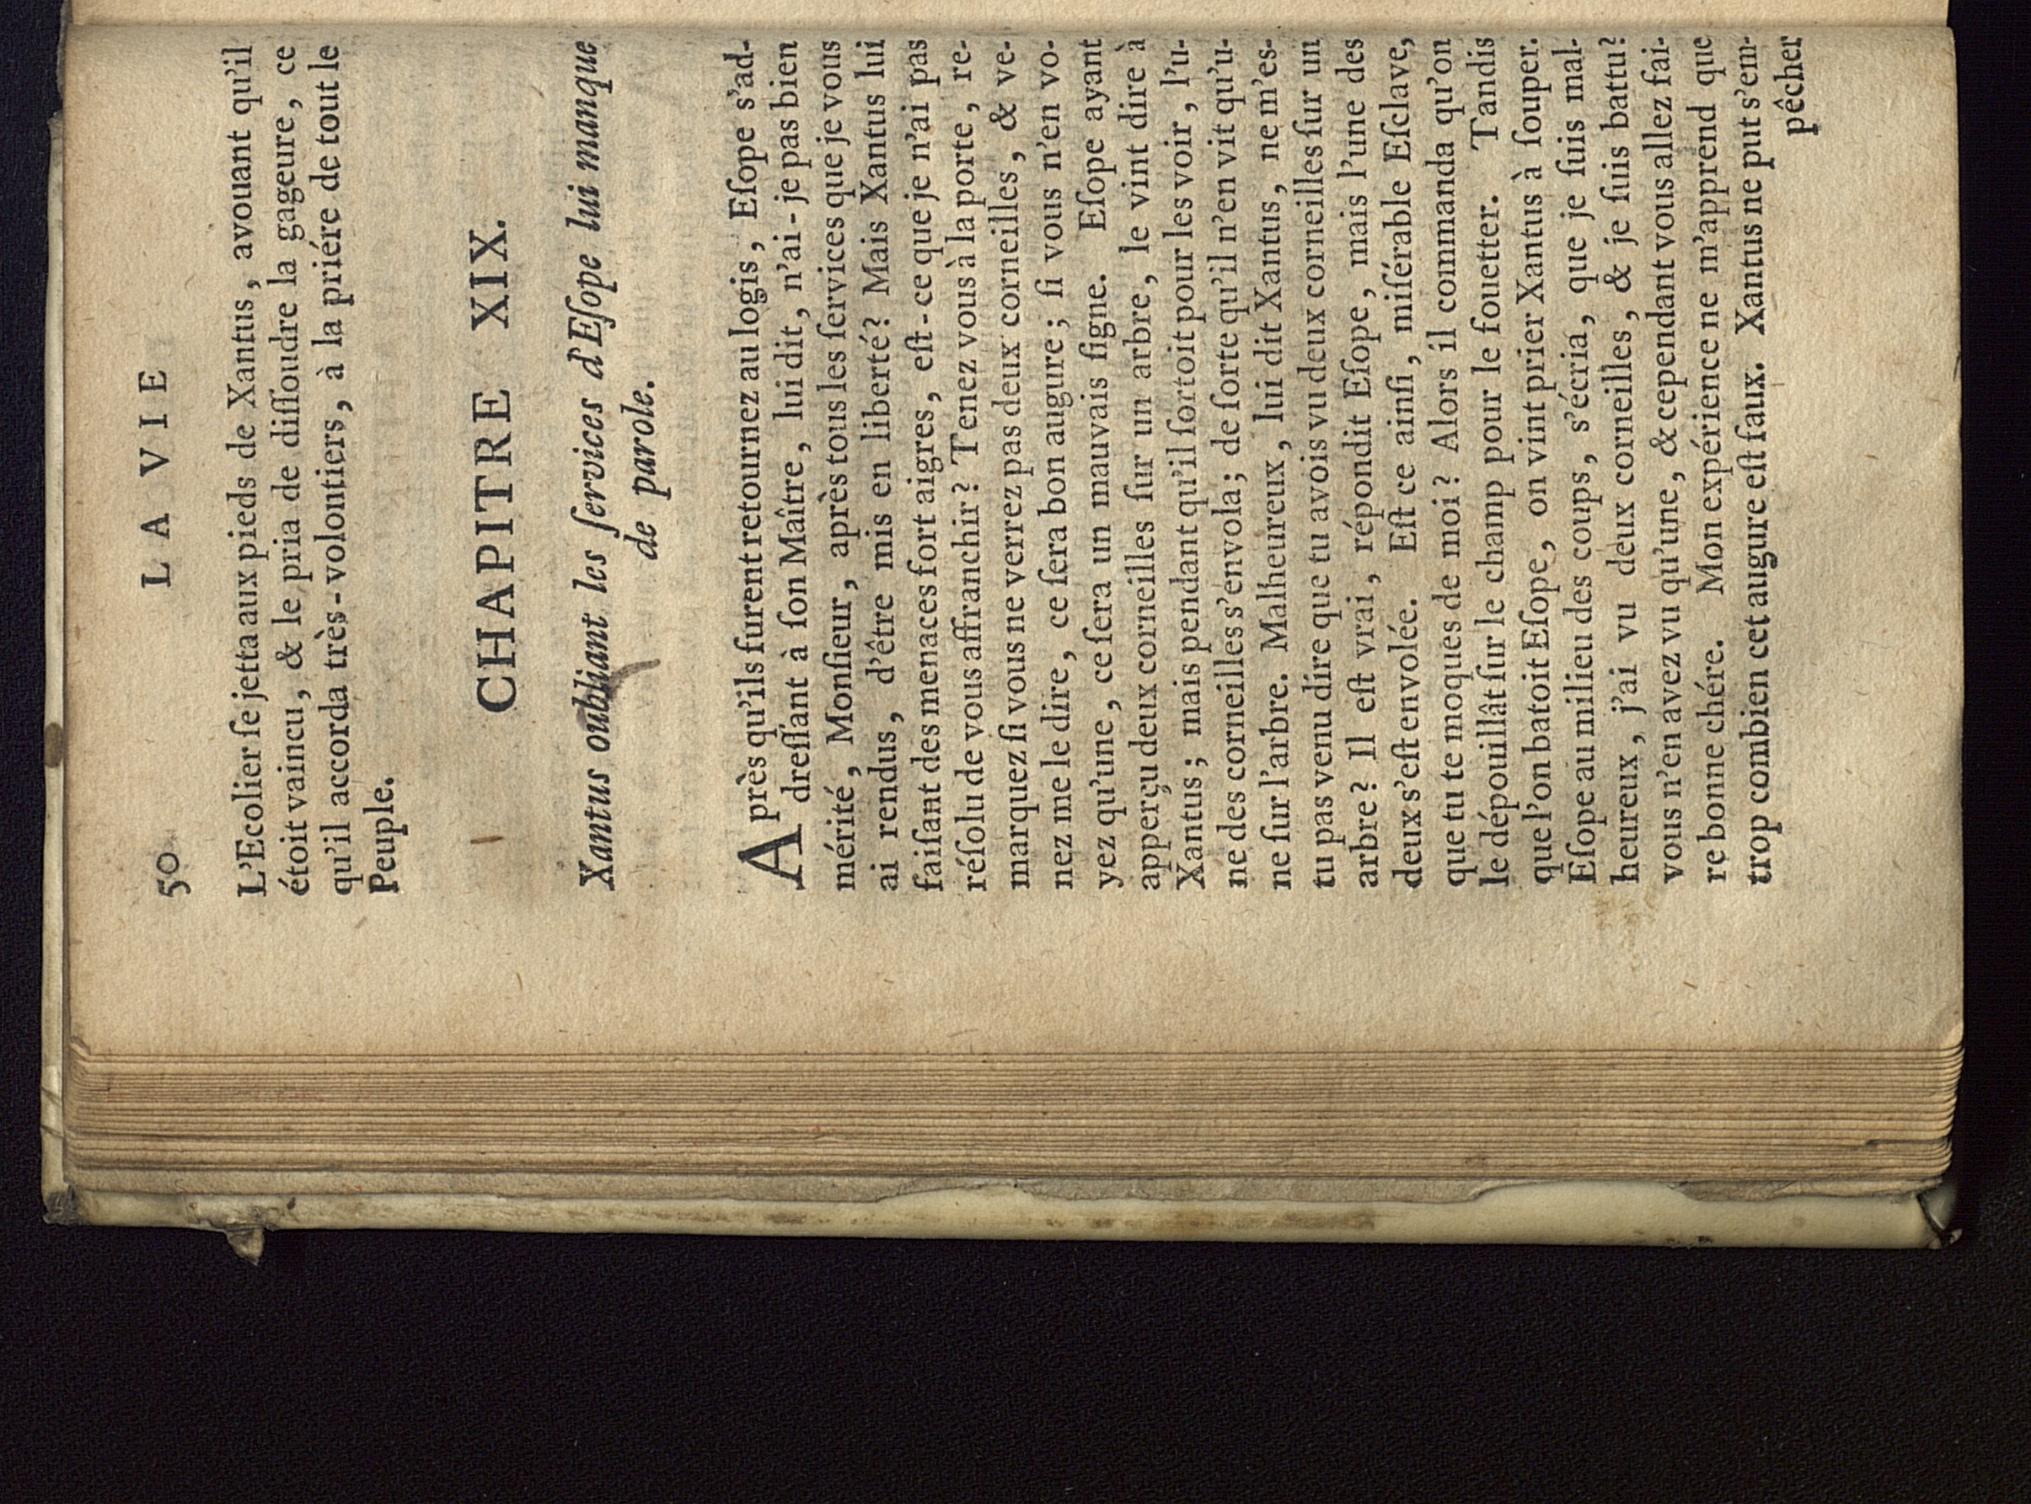 50 LA VIE
L'Ecolier ſe jetta aux pieds de Xantus, avouant qu'il
étoit vaincu, & le pria de diſſoudre la gageure, ce
qu'il accorda très-volontiers, à la priére de tout le
Peuple.
CHAPITRE XIX.
Xantus oubliant les ſervices d'Eſope lui manque
de parole.
Après qu'ils furent retournez au logis, Eſope s'ad-
dreſſant à ſon Maître, lui dit, n'ai-je pas bien
mérité, Monſieur, après tous les ſervices que je vous
ai rendus, d'être mis en liberté? Mais Xantus lui
faiſant des menaces fort aigres, eſt-ce que je n'ai pas
réſolu de vous affranchir? Tenez vous à la porte, re-
marquez ſi vous ne verrez pas deux corneilles, & ve-
nez me le dire, ce ſera bon augure; ſi vous n'en vo-
yez qu'une, ce ſera un mauvais ſigne. Eſope ayant
apperçu deux corneilles ſur un arbre, le vint dire à
Xantus; mais pendant qu'il ſortoit pour les voir, l'u-
ne des corneilles s'envola; de ſorte qu'il n'en vit qu'u-
ne ſur l'arbre. Malheureux, lui dit Xantus, ne m'es-
tu pas venu dire que tu avois vu deux corneilles ſur un
arbre? Il eſt vrai, répondit Eſope, mais l'une des
deux s'eſt envolée. Eſt ce ainſi, miſérable Eſclave,
que tu te moques de moi? Alors il commanda qu'on
le dépouillât ſur le champ pour le fouetter. Tandis
que l'on batoit Eſope, on vint prier Xantus à ſouper.
Eſope au milieu des coups, s'écria, que je ſuis mal-
heureux, j'ai vu deux corneilles, & je ſuis battu?
vous n'en avez vu qu'une, & cependant vous allez fai-
re bonne chére. Mon expérience ne m'apprend que
trop combien cet augure eſt faux. Xantus ne put s'em-
pêcher